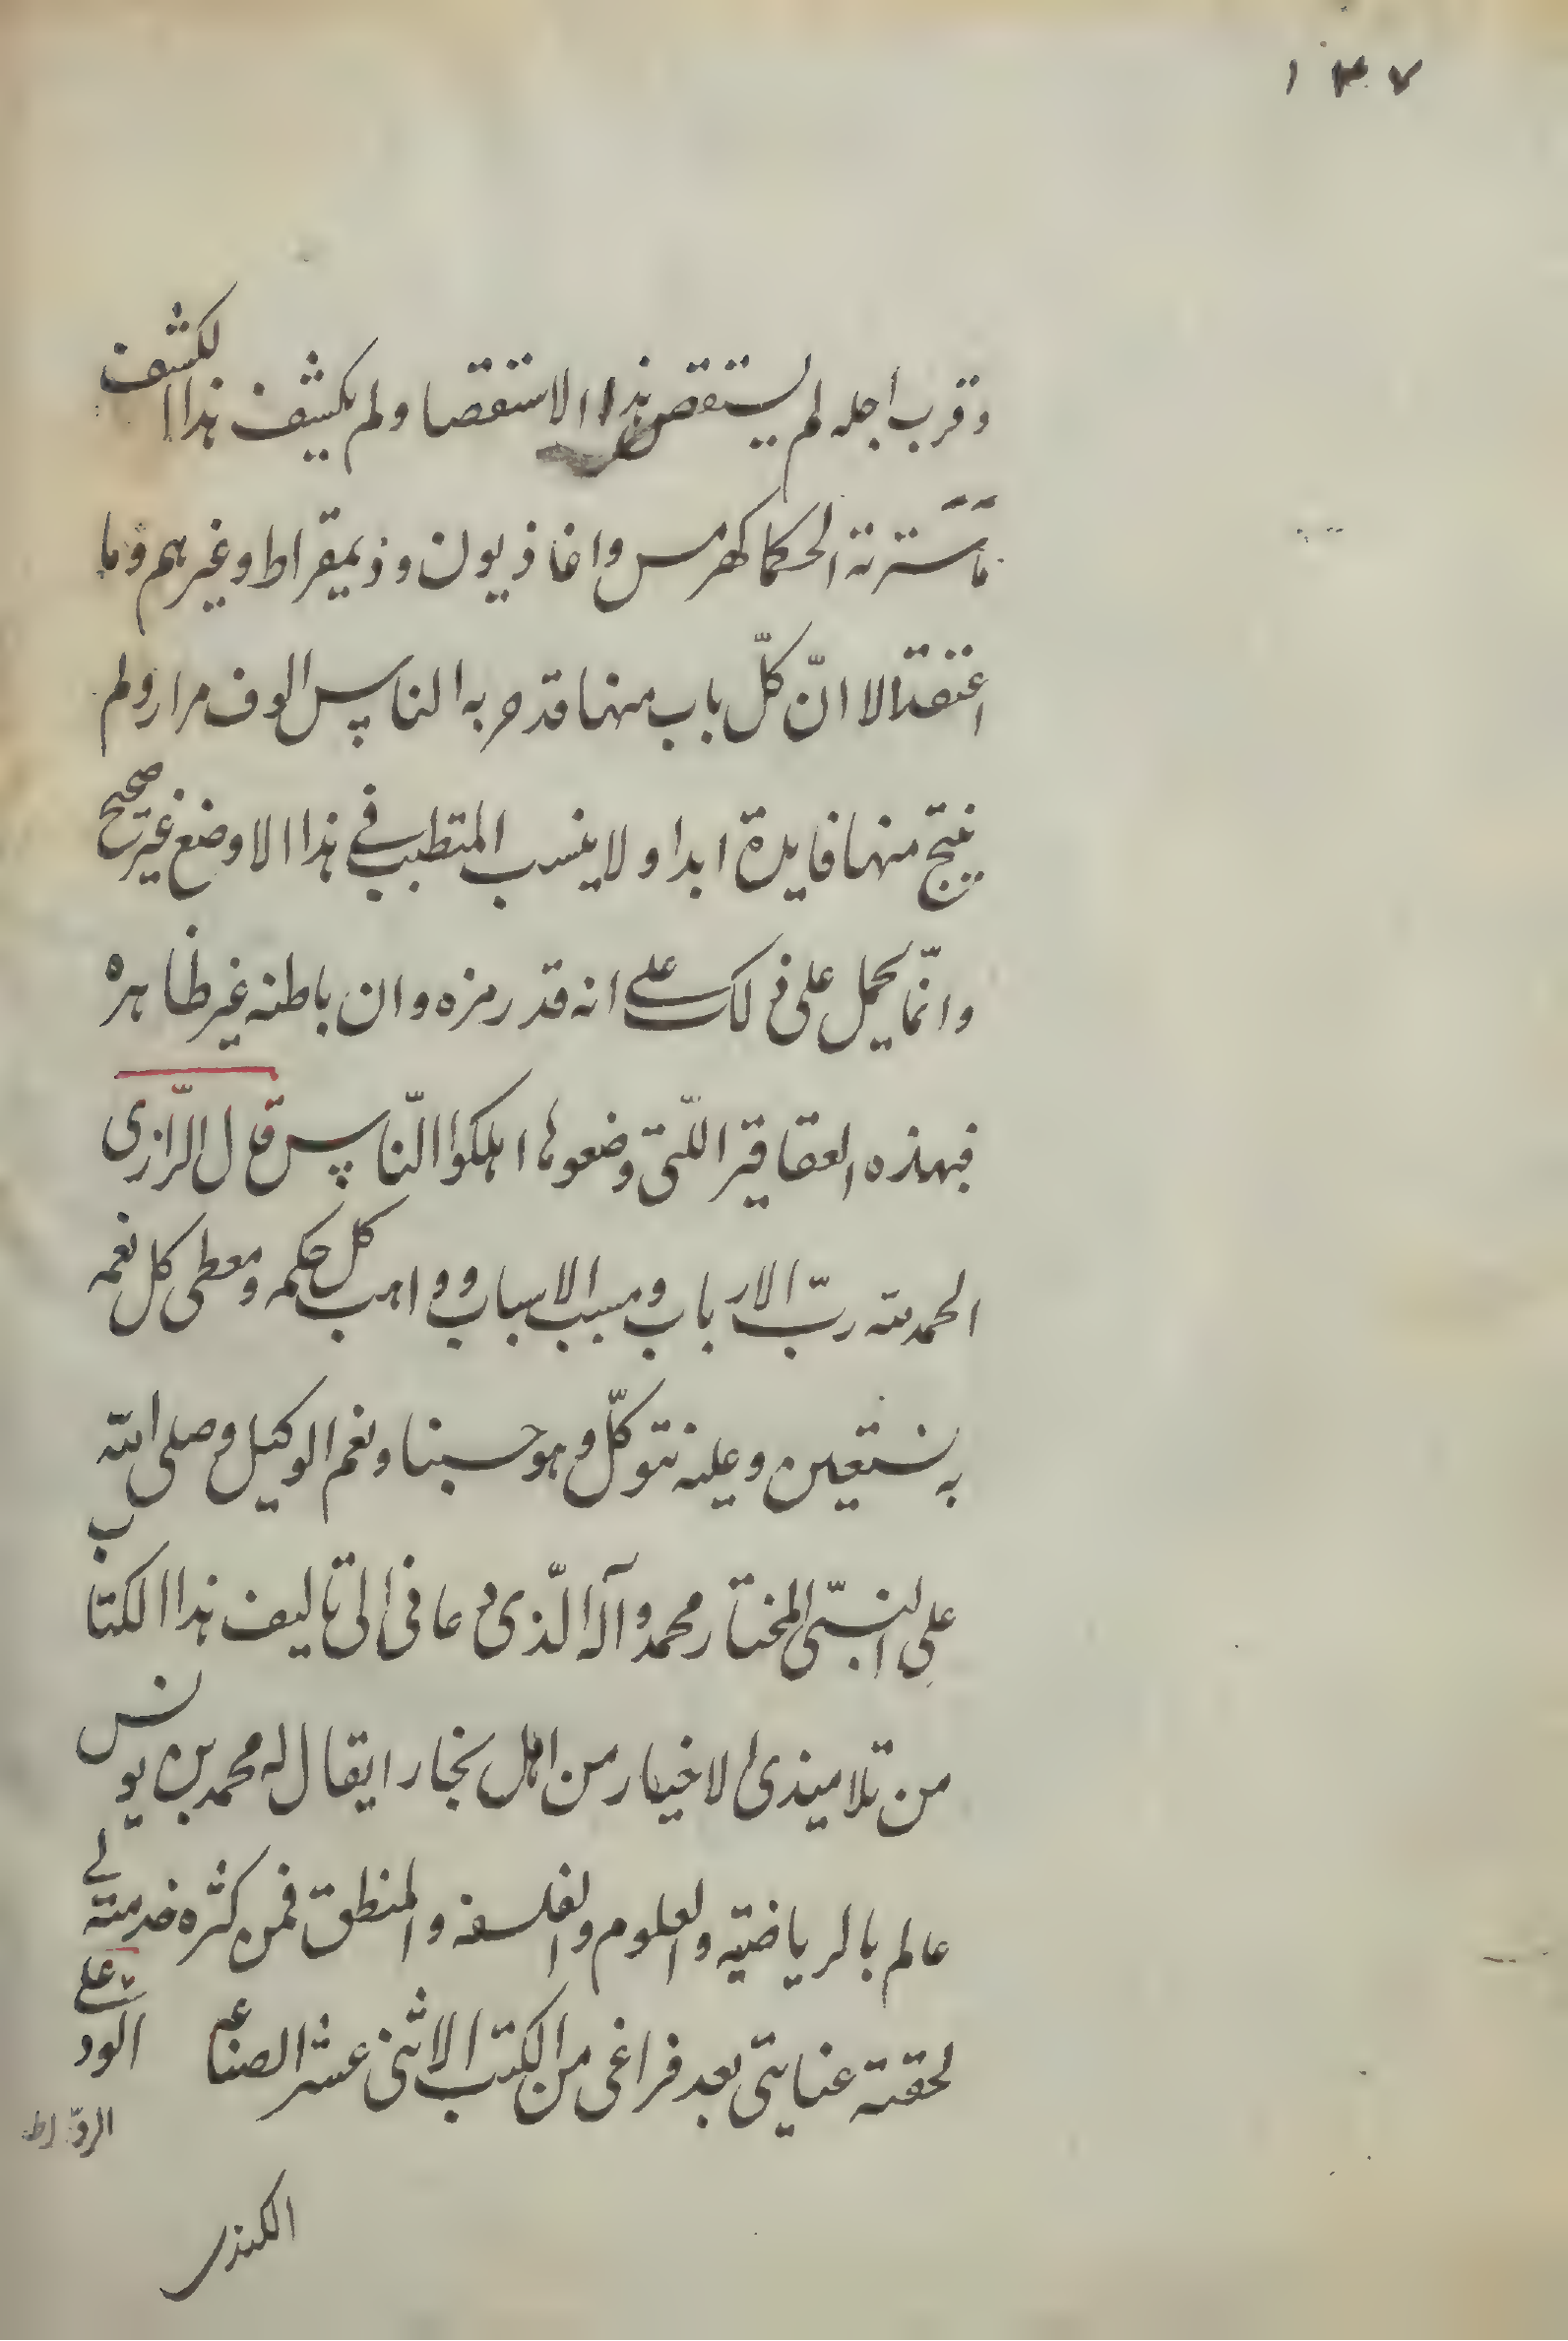 ١٣٧
وقرب اجله لم يستقص هذا الاستقصا ولم يكشف هذا الكشف
ما سترته الحكما كهرمس واغاذيون وذيمقراط وغيرهم وما
اعتقد الا انّ كلّ باب منها قد مر به الناس الوف مرار ولم
ينتج منها فايدة ابدا ولا ينسب المتطبب في هذا الا وضع غير صحيح
وانّما يحمل على ذلك على انه قد رمزه وان باطنه غير ظاهره
فبهذه العقاقير اللّتى وضعوها اهلكوا النّاس قال الرّازى
الحمد لله ربّ الارباب ومسبب الاسباب وواهب كل حكمه ومعطى كل نعمه
به نستعين وعليه نتوكلّ وهو حسبنا ونعم الوكيل وصلى الله
على النبىّ المختار محمد وآله الّذى دعانى الى تاليف هذا الكتاب
من تلاميذى الاخيار من اهل بخارا يقال له محمد بن يونس
عالم بالرياضيه والعلوم والفلسفه والمنطق فمن كثره خدمته لى
لحقته عنايتى بعد فراغى من الكتب الاثنى عشر الصناعه والرد على
الكندى